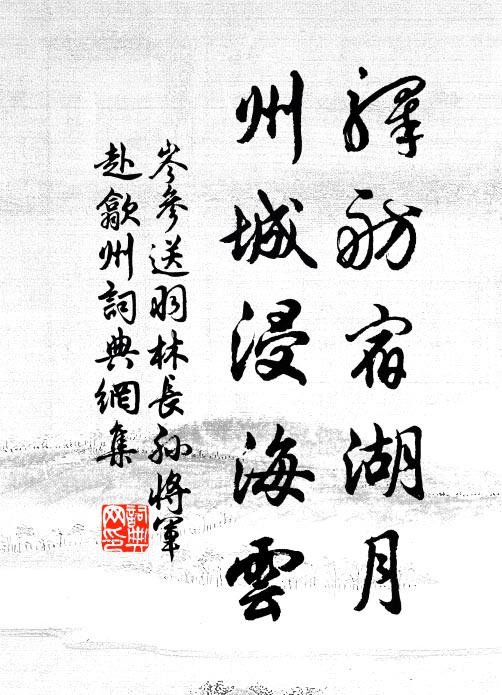 驛舫宿湖月
州城浸海雲
岑參送羽林長孫將軍
赴歙州詞典網集
詞典
网印